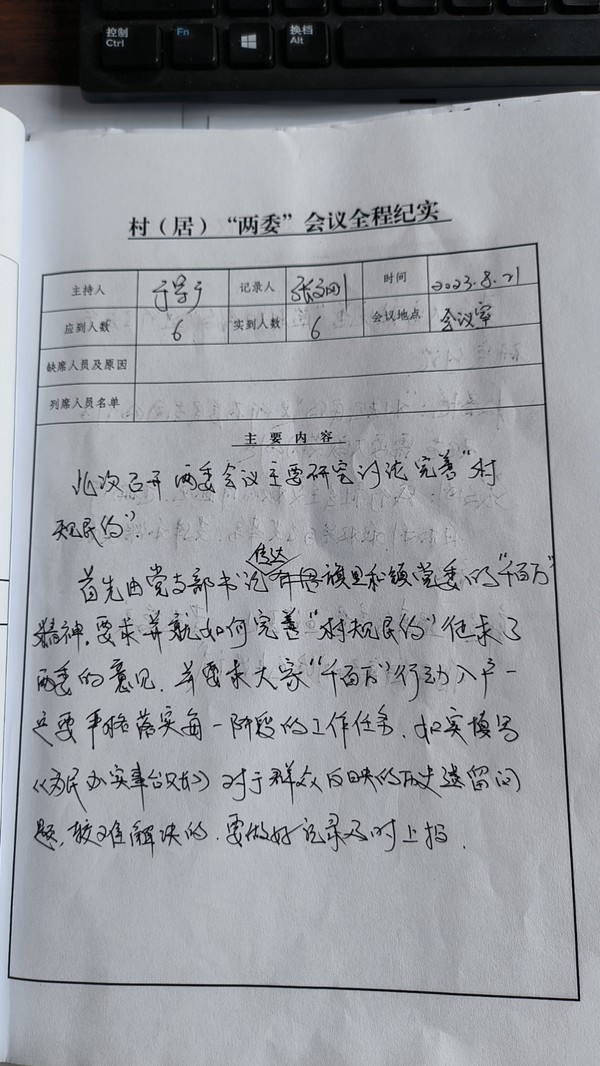 控制
Ctrl
Fn
换档
Alt
村（居）“两委”会议全程纪实
主持人 记录人 时间 2023.8.21
应到人数 6 实到人数 6 会议地点 会议室
缺席人员及原因
列席人员名单
主要内容
此次召开两委会议主要研究讨论完善“村
规民约”.
传达
首先由党支部书记旗里和镇党委的“千百万”
精神,要求并就如何完善“村规民约”征求了
两委的意见.并要求大家“千百万”行动入户一
定要严格落实每一阶段的工作任务.如实填写
《为民办实事台账》对于群众反映的历史遗留问
题,较难解决的.要做好记录及时上报.